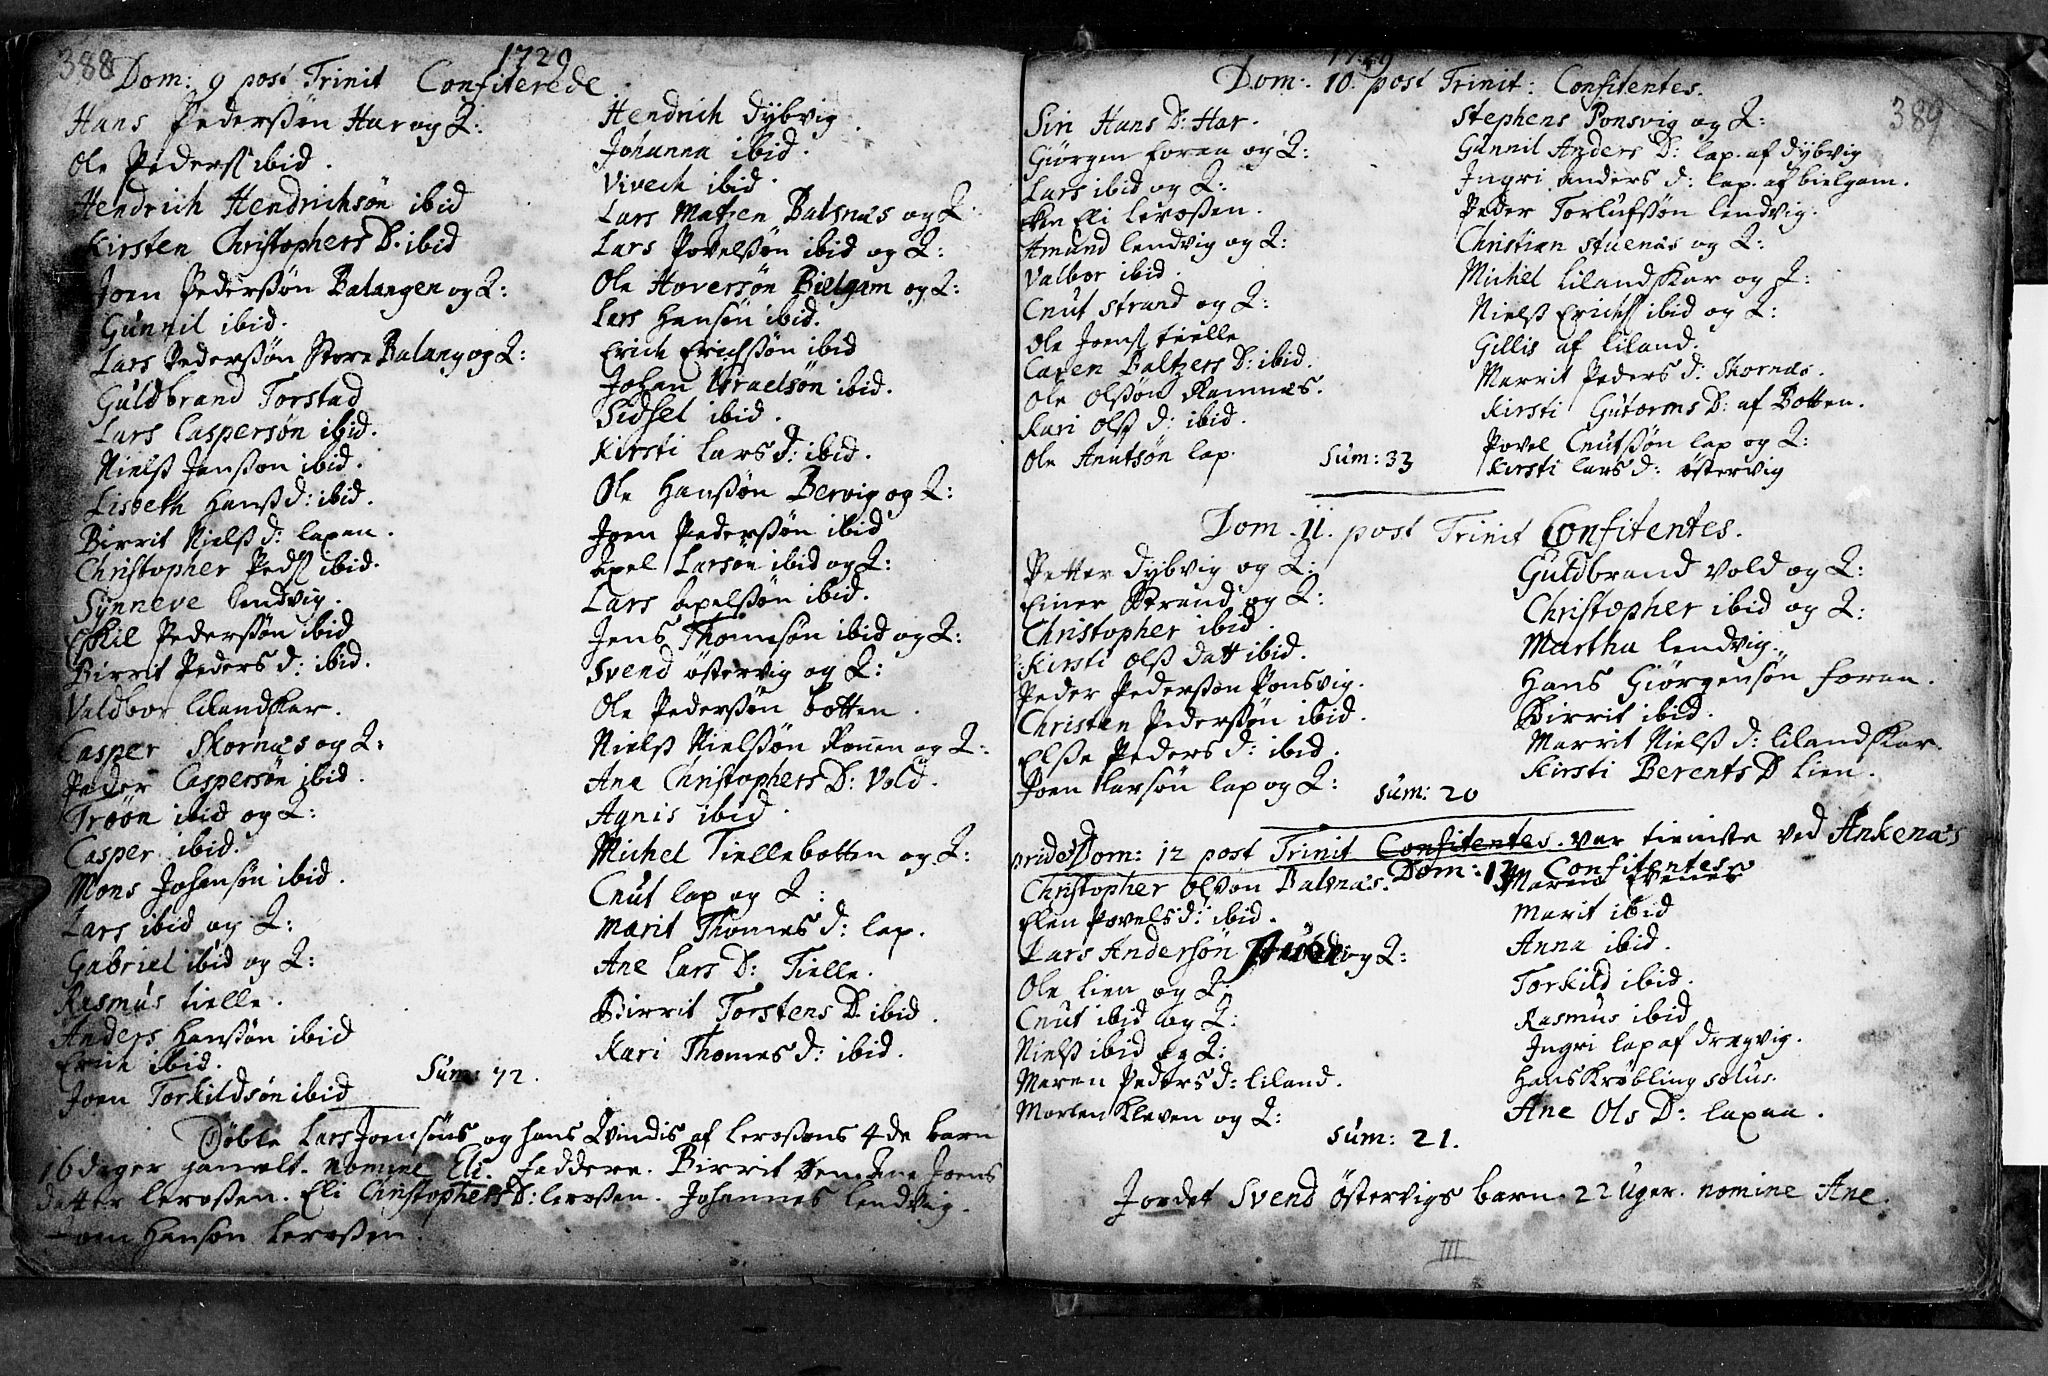 388
1729
Dom: 9 post Trinit Confiterede
Hans Pederssøn Har og Q:
Ole Peders ibid.
Hendrich Hendrichsøn ibid
Kirsten Christophers D. ibid
Joen Pederssøn Balangen og Q:
Gunnil ibid.
Lars Pederssøn Store Balang og Q:
Guldbrand Torstad
Lars Caspersøn ibid.
Nielß Janssøn ibid.
Lisbeth Hanß d: ibid.
Birrit Nielß d: lapen.
Christopher Peds ibid.
Synneve lendvig.
Eskil Pederssøn ibid
Birrit Peders d: ibid.
Valdbor lilandskar.
Casper Skornæs og Q:
Peder Caspersøn ibid.
Trøøn ibid og Q:
Casper ibid.
Mons Johansøn ibid.
Lars ibid og Q:
Gabriel ibid og Q:
Rasmus tielle.
Anders Hanssøn ibid
Erich ibid.
Joen Torkildsøn ibid
Hendrich dybvig.
Johanna ibid.
Vivech ibid.
Lars Matzen Balsnæs og Q
Lars Povelssøn ibid og Q:
Ole Hoversøn Bielgam og Q:
Lars Hansøn ibid.
Erich Erichssøn ibid
Johan Israelsøn ibid.
Sidsel ibid.
Kirsti Lars d: ibid.
Ole Hanssøn Bervig og Q:
Joen Pederssøn ibid
Apel Larsøn ibid og Q:
Lars Apelssøn ibid.
Jens Thomesøn ibid og Q:
Svend østervig og Q:
Ole Pederssøn botten.
Nielß Nielssøn Rønen og Q:
Ane Christophers D: Vold.
Agnis ibid
Michel Tiellebotten og Q:
Cnut lap og Q:
Marit Thomes d: lap.
Ane Lars D: Tielle.
Birrit Torstens D. ibid.
Kari Thomes d: ibid.
Sum: 72.
Døbte Lars Joensøns og hans Qvindis af leroßens 4de barn
16 dager gamelt. nomine Eli. Faddere. Birrit Joens
datter leroßen. Eli Christophers D: leroßen. Johannes lendvig.
Joen Hansøn leroßen.
389
1729
Dom: 10. post Trinit: Confitentes.
Siri Hans D: Har.
Giørgen foraa og Q:
Lars ibid og Q:
Eli leroßen.
Amund lendvig og Q:
Valbor ibid.
Cnut strand og Q:
Ole Joens tielle
Caren Baltzers D: ibid.
Ole Olssøn Ramnæs.
Kari Olß d: ibid.
Ole Anutsøn lap.
Sum: 33
Stephens Ponsvig og Q:
Gunnil Anders D: lap. af dybvig
Ingri anders d: lap. af bielgam.
Peder Torlufssøn lendvig.
Christian stuenæs og Q:
Michel lilandskar og Q:
Nielß Erichs ibid og Q:
Gillis af liland.
Marrit Peders d: Skornæs.
Kirsti Gutorms D: af Botten.
Povel Cnutssøn lap og Q:
Kirsti lars d: østervig
Dom. 11. post Trinit Confitentes.
Petter dybvig og Q:
Einer Strand og Q:
Christopher ibid.
Kirsti Olß datt ibid.
Peder Pederssøn Ponsvig.
Christen Pederssøn ibid.
Elße Peders d: ibid.
Joen Larsøn lap og Q:
Sum: 20
Guldbrand Vold og Q:
Christopher ibid og Q:
Martha lendvig.
Hans Giørgensøn foraa.
Birrit ibid.
Marrit Nielß d: lilandskar.
Kirsti Berents D Lien.
pridie Dom: 12 post Trinit Confitentes. var tieniste ved Ankenæs
Dom: 13 Confitentes
Christopher Olsøn Balsnæs.
Elen Povels d: ibid.
Lars Andersøn og Q:
Ole Lien og Q:
Cnut ibid og Q:
Nielß ibid og Q:
Maren Peders d: liland.
Morten Kleven og Q:
Sum: 21.
Maren Evenes
Marit ibid
Anna ibid.
Torkild ibid.
Rasmus ibid
Ingri lap af dragvig.
Hans Krøbling solus.
Ane Ols D: lapaa.
Jordet Svend Østervigs barn. 22 Uger. nomine Ane.
III